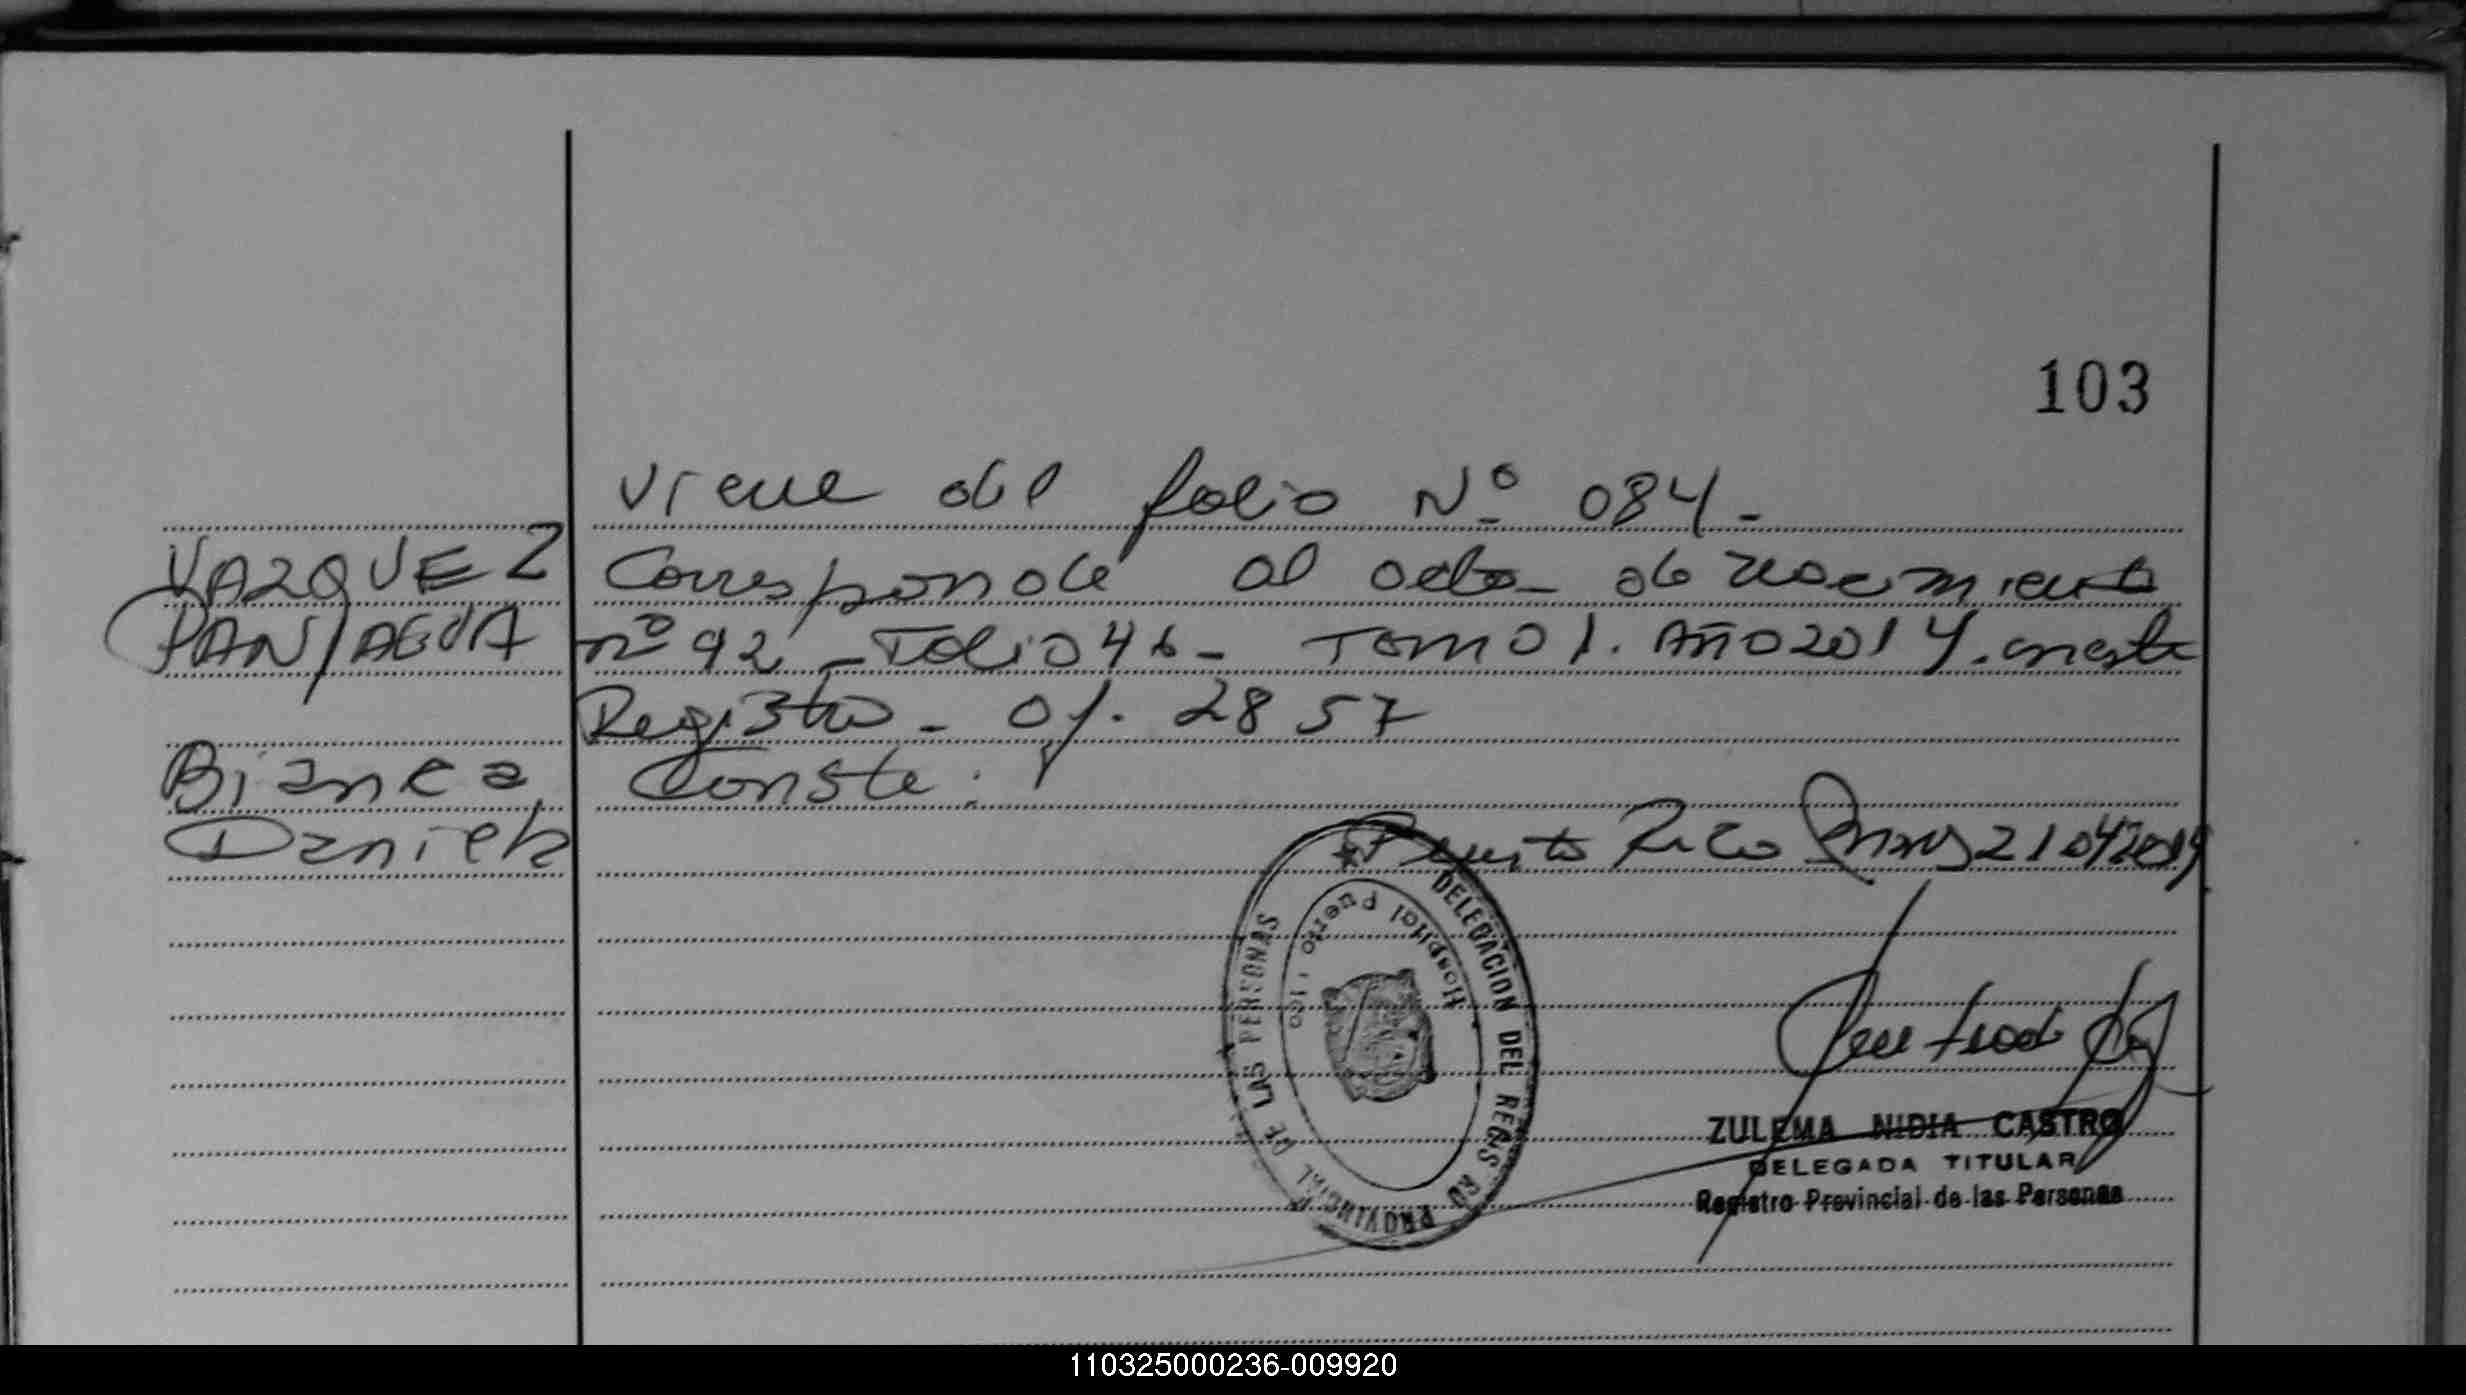 103
Viene del folio Nº 084-
VAZQUEZ Corresponde al acta de nacimiento
PANIAGUA nº 92 - Folio 46 - Tomo 1. Año 2014. en este
Registro - of. 2857
Bianca Conste.
Daniela Puerto Rico Mnes 21 04 2014
DELEGACION DEL REGISTRO PROVINCIAL DE LAS PERSONAS
Hospital Puerto rico
ZULEMA NIDIA CASTRO
DELEGADA TITULAR
Registro Provincial de las Personas
110325000236-009920